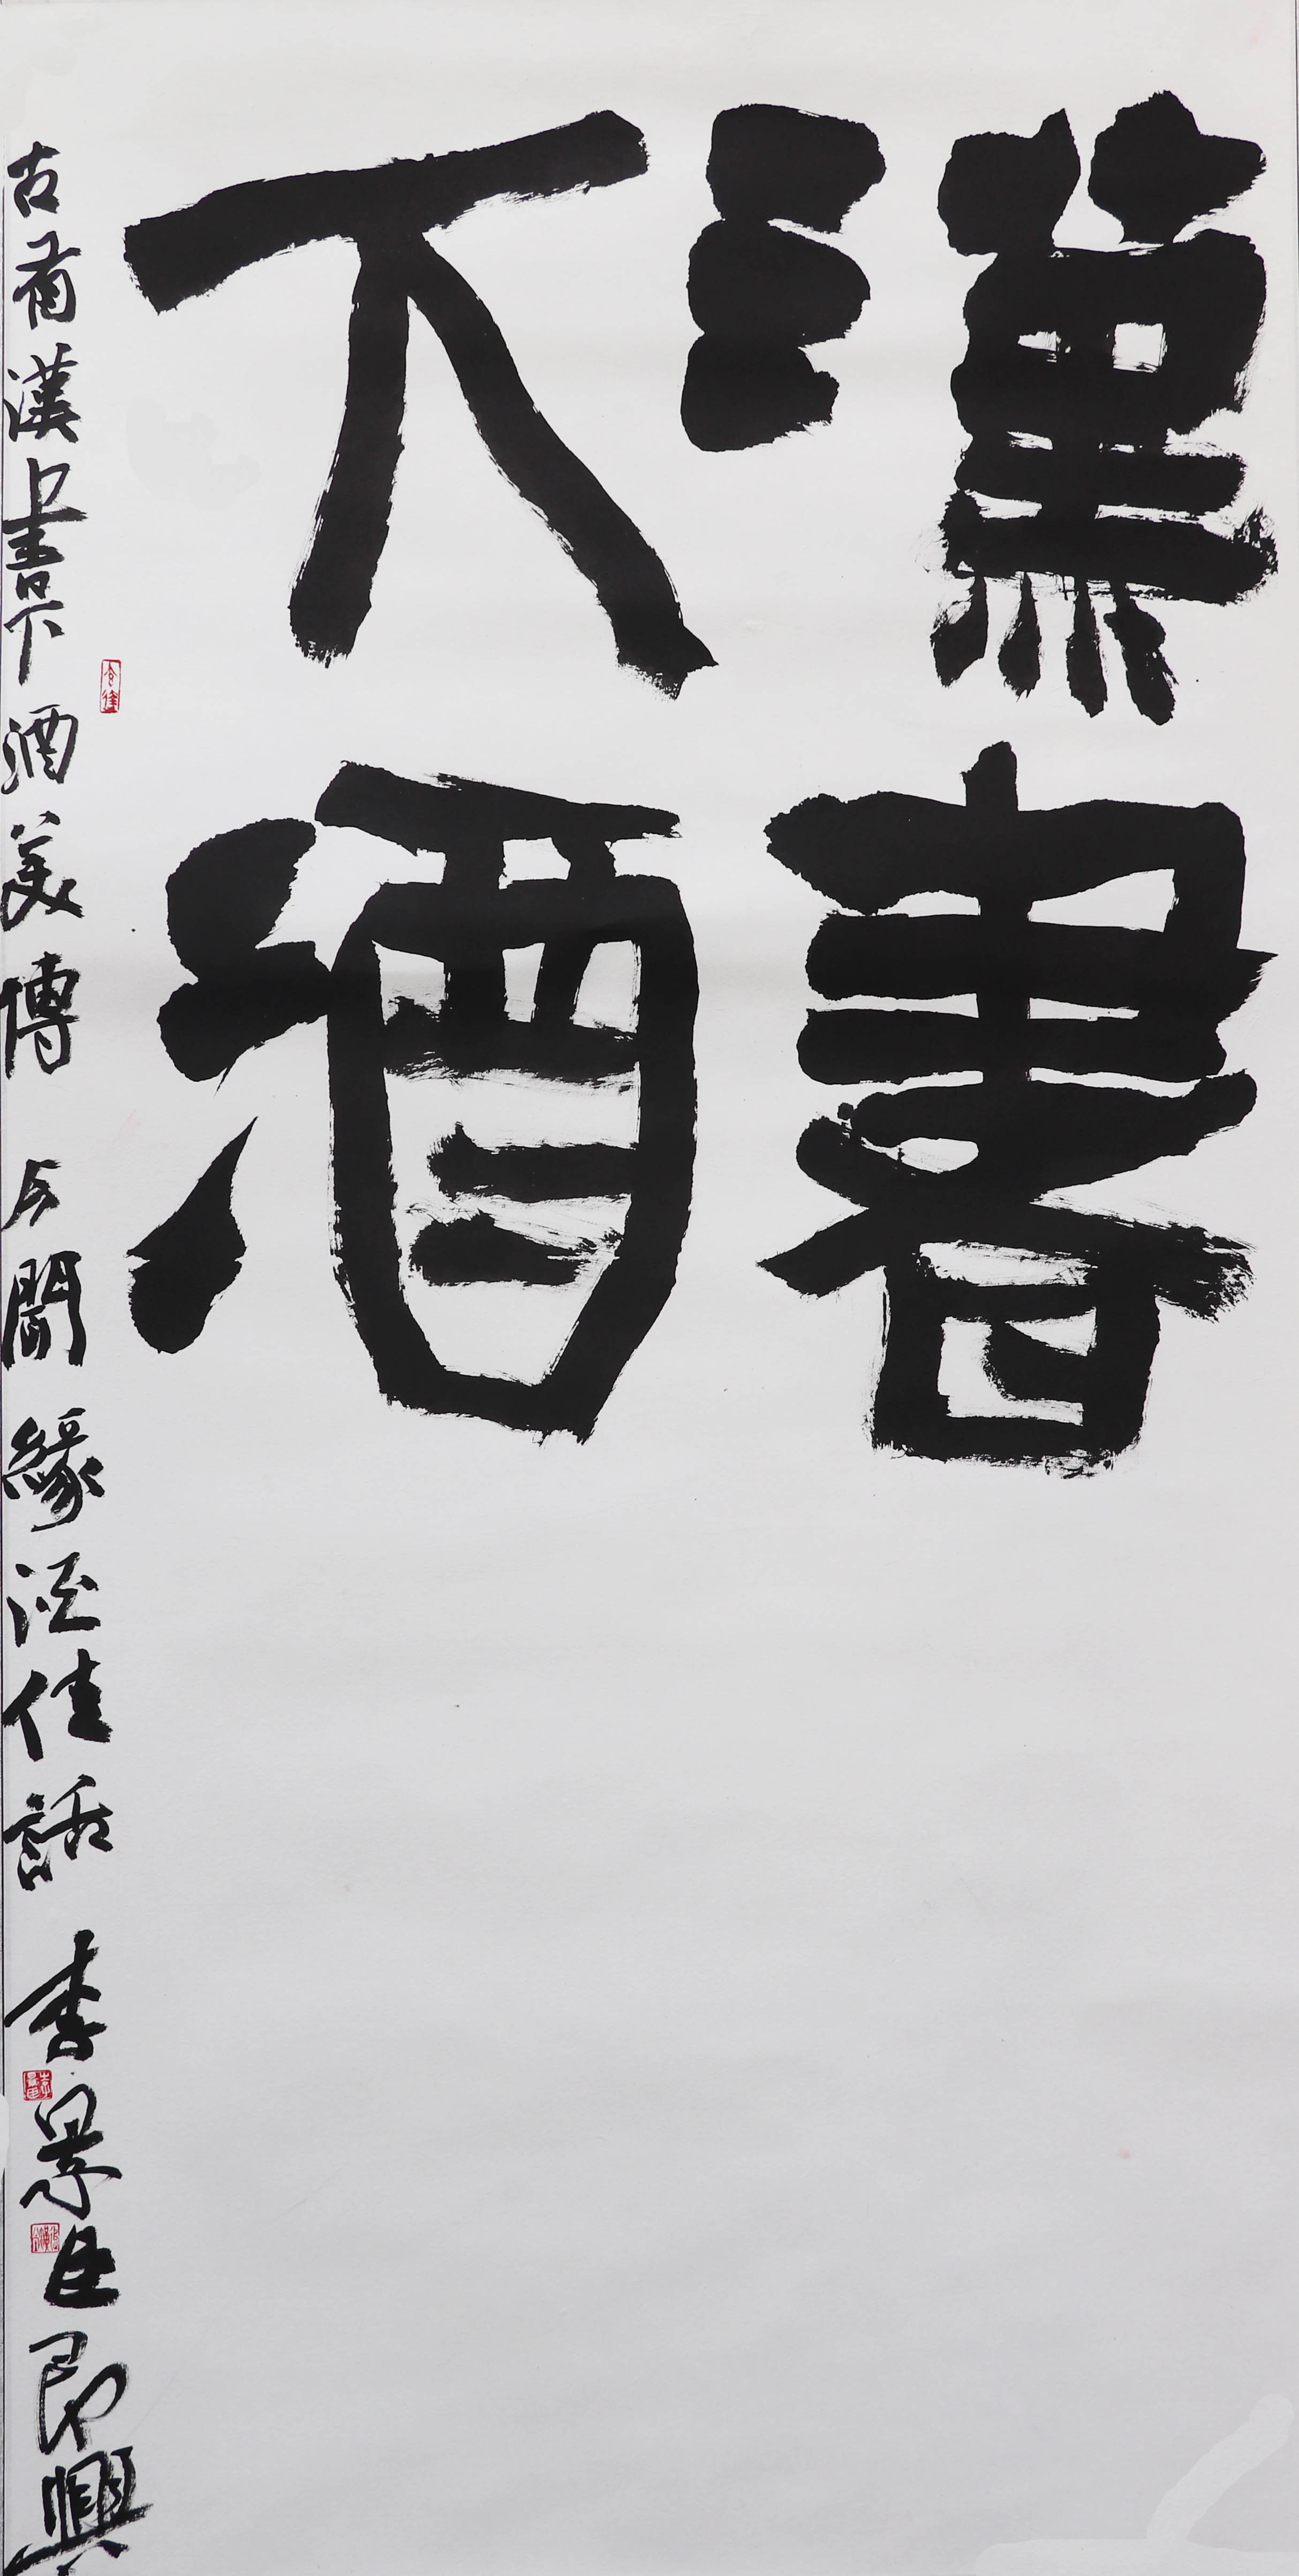 漢書
下酒
古有漢書下酒美傳 今聞緣佳話 李景即興